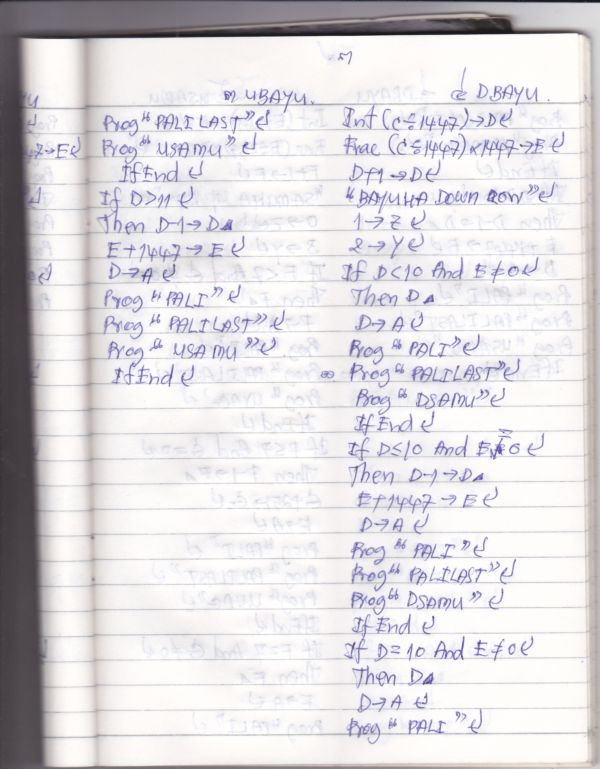 UBAYU.
Prog "PALILAST"↵
Prog "USAMU"↵
IfEnd↵
If D>11↵
Then D-1→D◢
E+1447→E↵
D→A↵
Prog "PALI"↵
Prog "PALILAST"↵
Prog "USAMU"↵
IfEnd↵
DBAYU.
Int (C÷1447)→D↵
Frac (C÷1447)×1447→E↵
D+1→D↵
"BAYUHA DOWN ROW"↵
1→Z↵
2→Y↵
If D<10 And E≠0↵
Then D◢
D→A↵
Prog "PALI"↵
Prog "PALILAST"↵
Prog "DSAMU"↵
IfEnd↵
If D≤10 And E=0↵
Then D-1→D◢
E+1447→E↵
D→A↵
Prog "PALI"↵
Prog "PALILAST"↵
Prog "DSAMU"↵
IfEnd↵
If D=10 And E≠0↵
Then D◢
D→A↵
Prog "PALI"↵